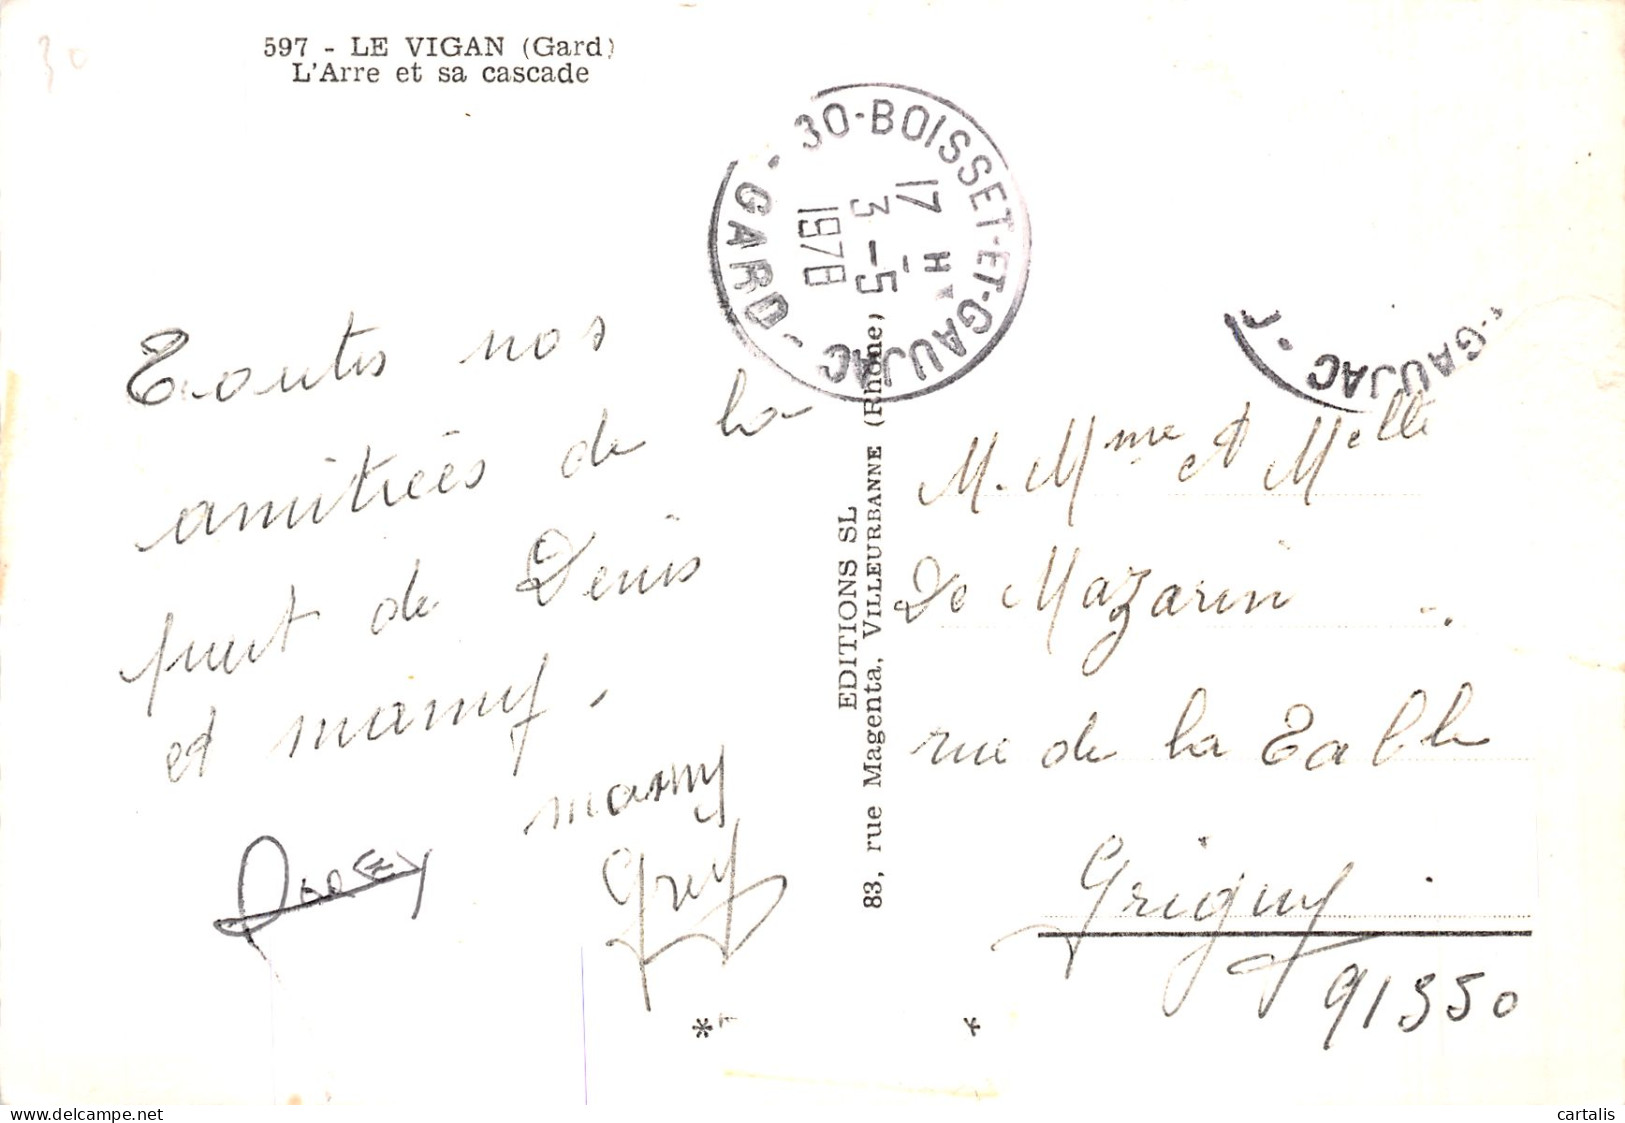 30
597 - LE VIGAN (Gard)
L'Arre et sa cascade
30-BOISSET-ET-GAUJAC
GARD
17 H
3 -5
1978
-GAUJAC
Toutes nos
amitiées de la
part de Denis
et mamy.
mamy
EDITIONS SL
83, rue Magenta, VILLEURBANNE (Rhône)
M. Mme et Melle
De Mazarin
rue de la Table
Grigny
91350
cartalis